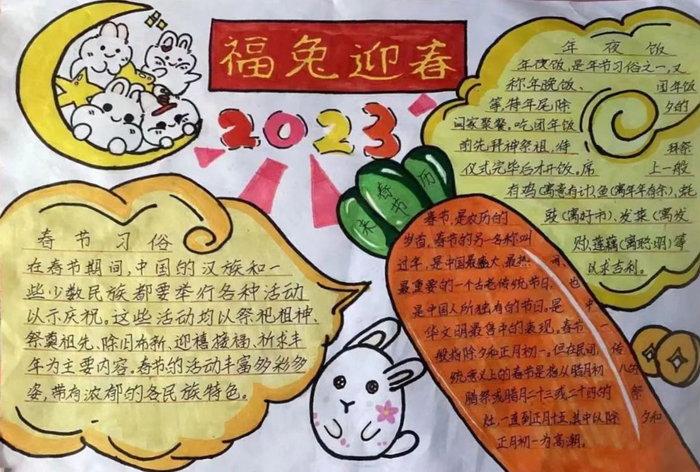 福兔迎春
2023
年夜饭
年夜饭,是年节习俗之一,又
称年晚饭、团年饭
等,特年尾除夕的
阖家聚餐。吃团年饭
前先拜神祭祖,待拜祭
仪式完毕后才开饭。席上一般
有鸡(寓意有计)、鱼(寓年年有余)、蚝
豉(寓好市)、发菜(寓发
财)、莲藕(寓聪明)等
以求吉利。
春节习俗
在春节期间,中国的汉族和一
些少数民族都要举行各种活动
以示庆祝。这些活动均以祭祀祖神、
祭奠祖先、除旧布新、迎禧接福、祈求丰
年为主要内容。春节的活动丰富多彩多
姿,带有浓郁的各民族特色。
春节来历
春节,是农历的
岁首,春节的另一名称叫
过年,是中国最盛大、最热闹、
最重要的一个古老传统节日,也
是中国人所独有的节日。是中
华文明最集中的表现。春节一
般指除夕和正月初一。但在民间,传
统意义上的春节是指从腊月初八的
腊祭或腊月二十三或二十四的祭
灶,一直到正月十五,其中以除夕和
正月初一为高潮。